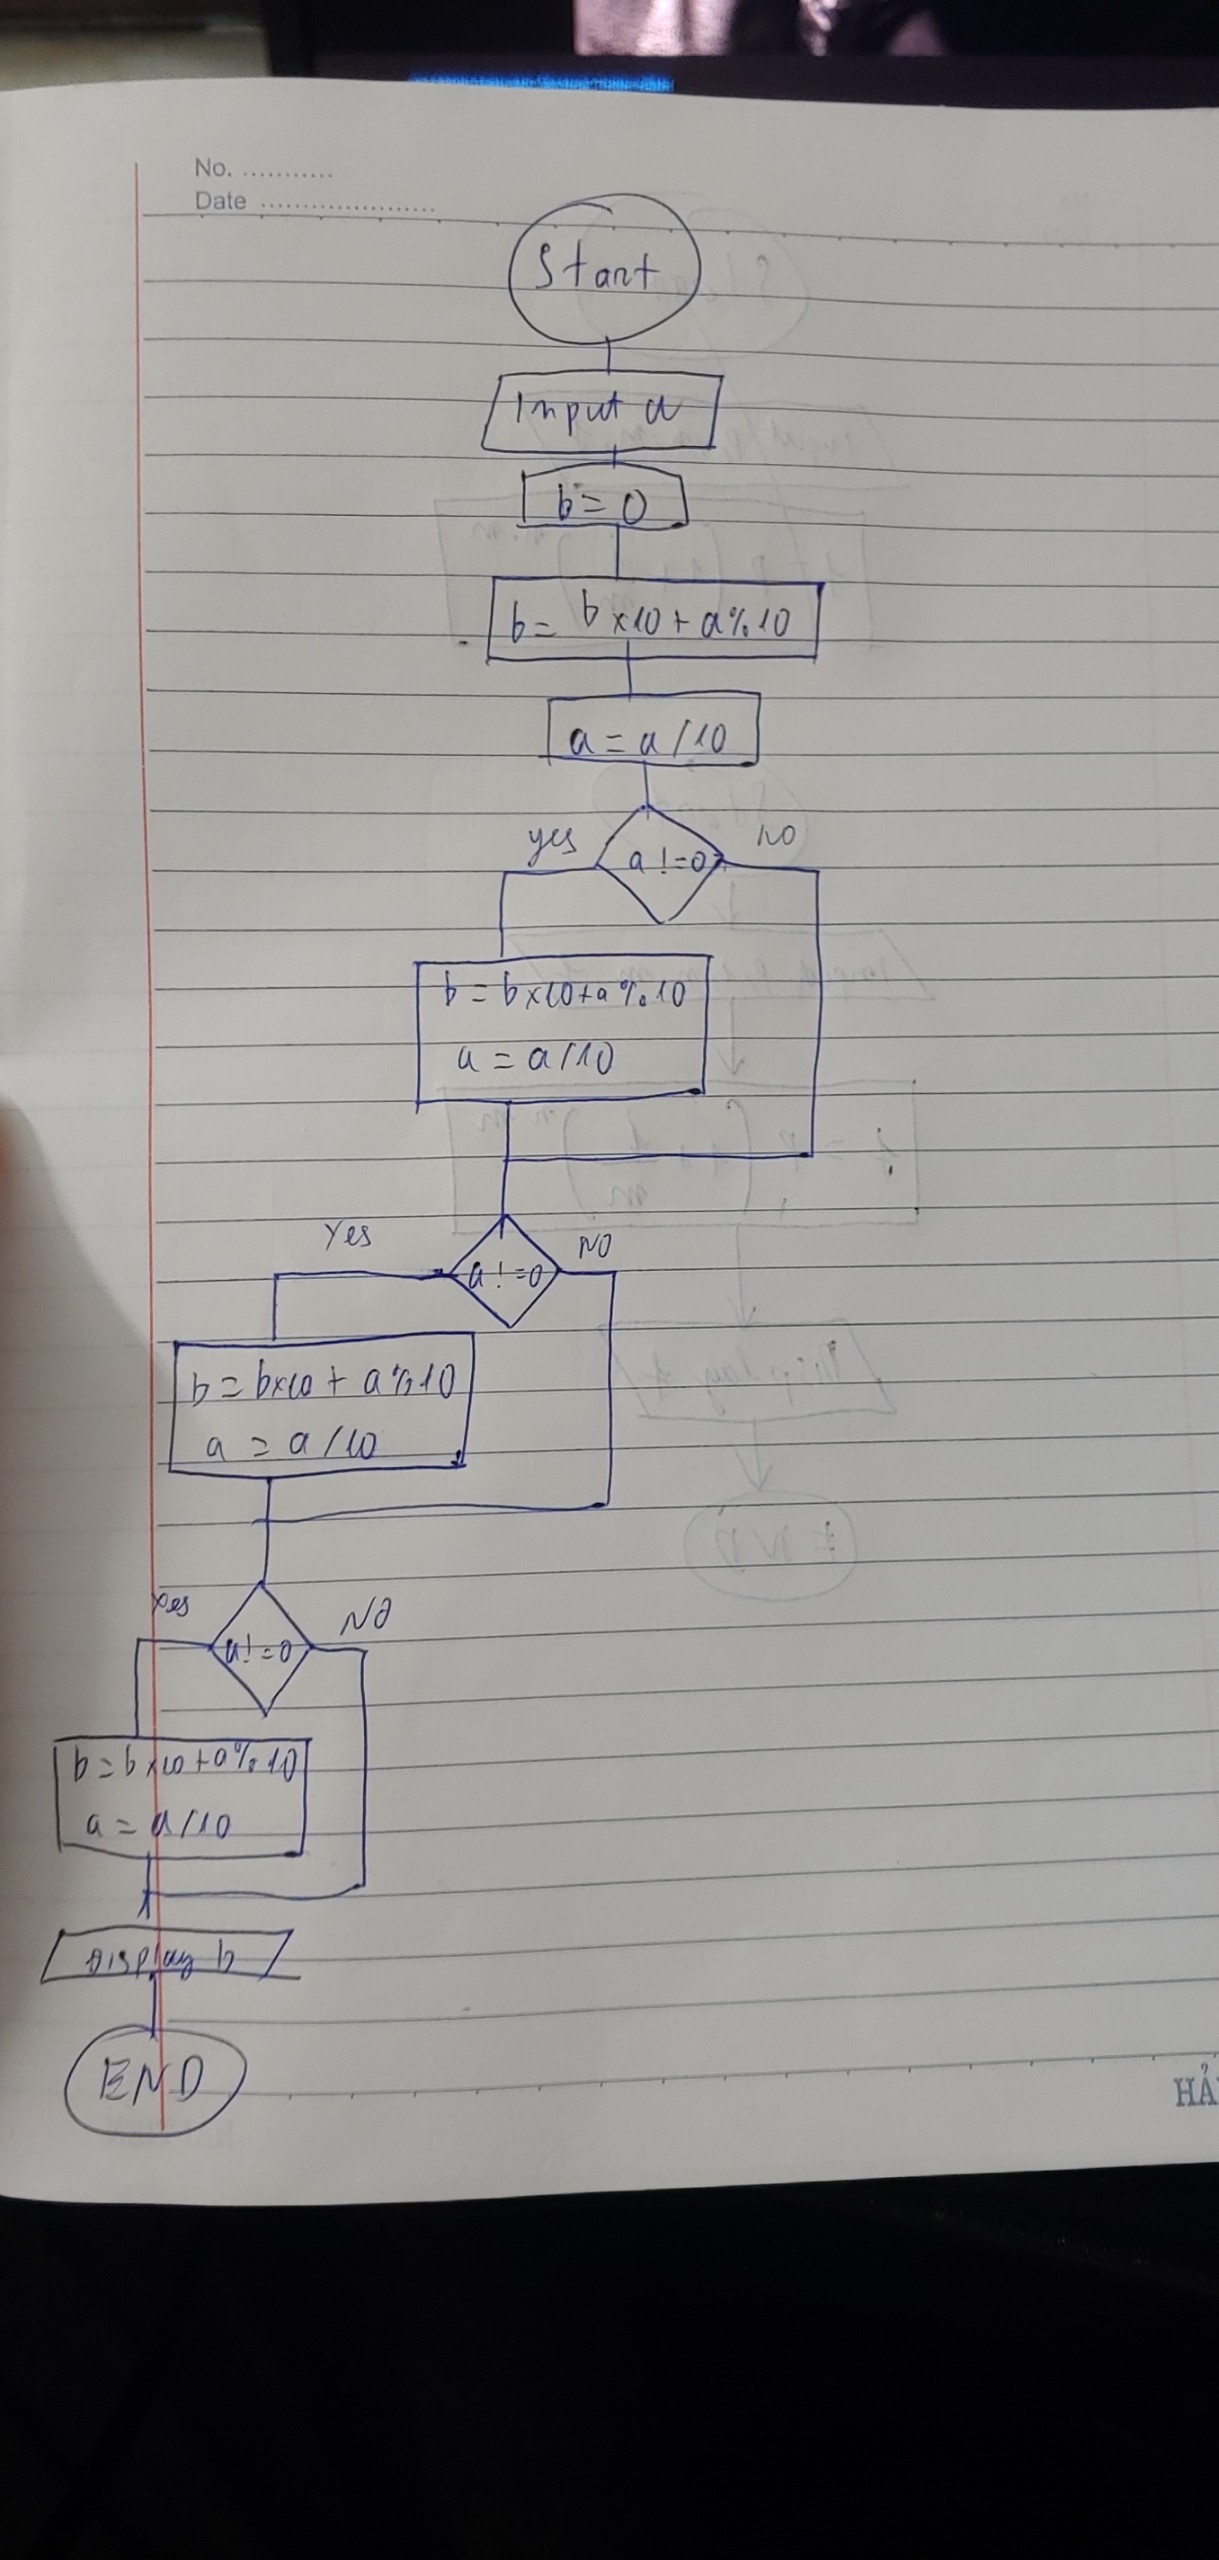 No. ...........
Date ......................
Start
Input a
b = 0
b = b x10 + a%10
a = a /10
yes
a != 0
NO
b = b x10 + a % 10
a = a /10
Yes
a != 0
NO
b = b x10 + a % 10
a = a /10
Yes
a != 0
NO
b = b x10 + a % 10
a = a /10
Display b
END
HẢ